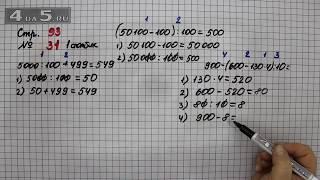 4 a - 5 . ru
Стр. 93
№ 31 1 столбик
5000:100+499=549
1) 5000:100=50
2) 50+499=549
1 2
(50100-100):100=500
1) 50100-100=50000
2) 50000:100=500
4 2 1 3
900-(600-130·4):10=
1) 130·4=520
2) 600-520=80
3) 80:10=8
4) 900-8=